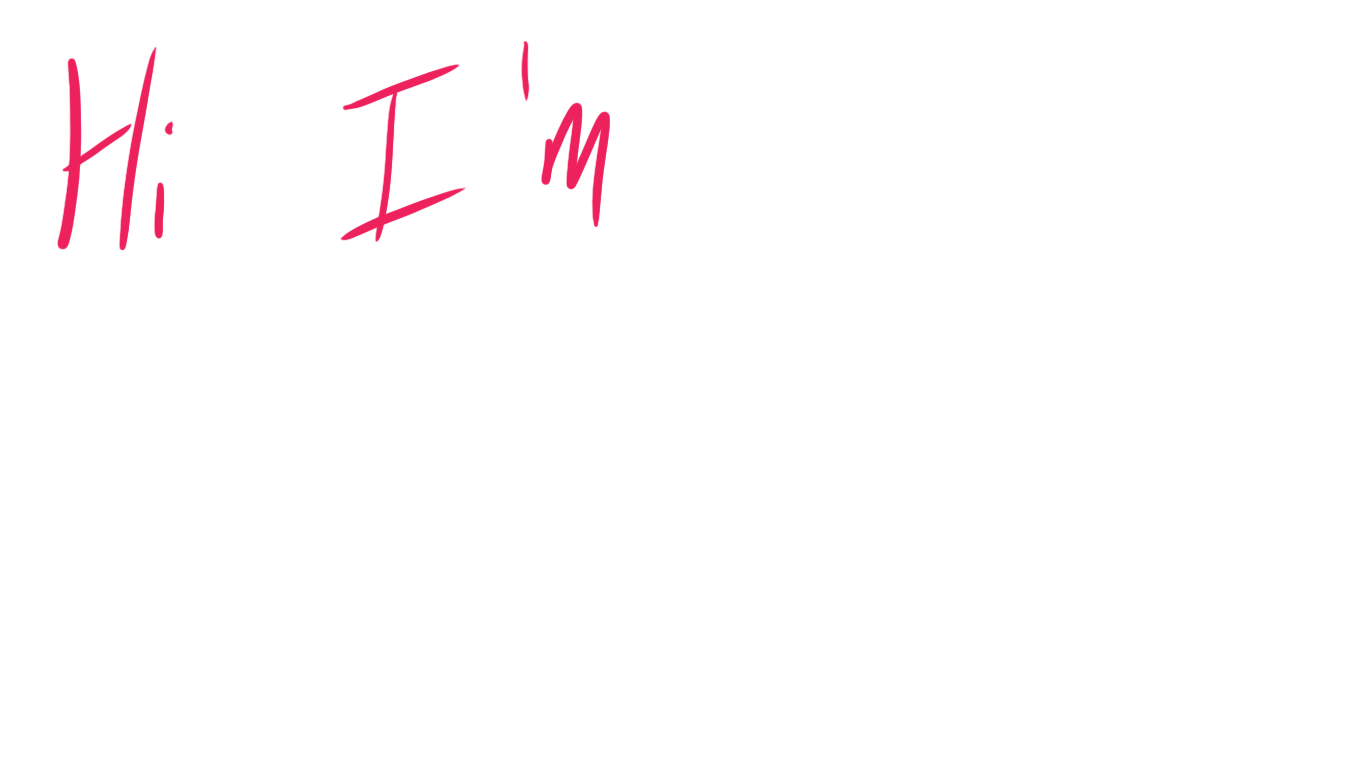 Hi I'm